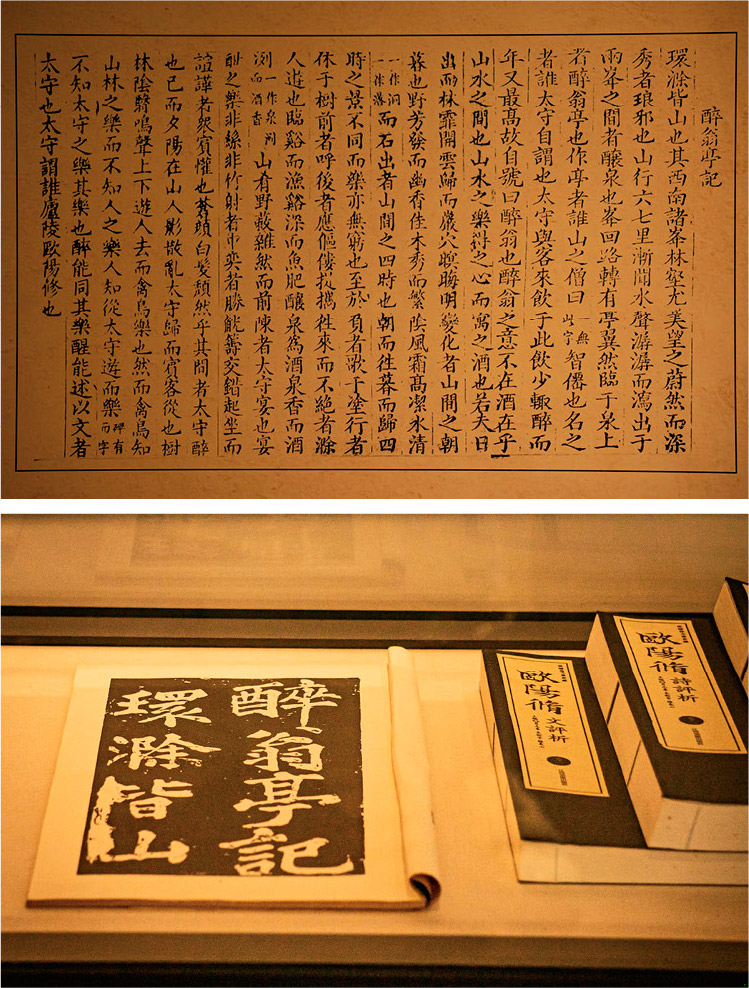 醉翁亭記
環滁皆山也其西南諸峯林壑尤美望之蔚然而深
秀者琅邪也山行六七里漸聞水聲潺潺而瀉出于
兩峯之間者釀泉也峯回路轉有亭翼然臨于泉上
者醉翁亭也作亭者誰山之僧曰一無此字智僊也名之
者誰太守自謂也太守與客來飲于此飲少輒醉而
年又最髙故自號曰醉翁也醉翁之意不在酒在乎
山水之間也山水之樂得之心而寓之酒也若夫日
出而林霏開雲歸而巖穴暝晦明變化者山間之朝
暮也野芳發而幽香佳木秀而繁陰風霜髙潔水清
一作洞一作落而石出者山間之四時也朝而往暮而歸四
時之景不同而樂亦無窮也至於負者歌于塗行者
休于樹前者呼後者應傴僂提攜往來而不絶者滁
人遊也臨谿而漁谿深而魚肥釀泉爲酒泉香而酒
洌一作泉冽而酒香山肴野蔌雜然而前陳者太守宴也宴
酣之樂非絲非竹射者中奕者勝觥籌交錯起坐而
諠譁者衆賓懽也蒼顔白髮頽然乎其間者太守醉
也已而夕陽在山人影散亂太守歸而賓客從也樹
林陰翳鳴聲上下遊人去而禽鳥樂也然而禽鳥知
山林之樂而不知人之樂人知從太守遊而樂碑有而字
不知太守之樂其樂也醉能同其樂醒能述以文者
太守也太守謂誰廬陵歐陽修也
醉翁亭記
環滁皆山
歐陽脩文評析
歐陽脩詩評析